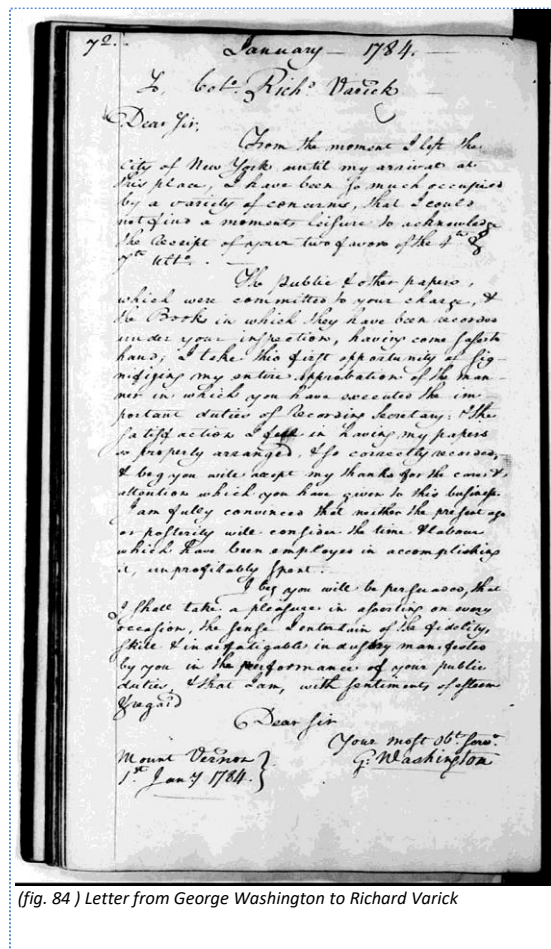 72.
January — 1784.
To Colo. Richd. Varick
Dear Sir,
From the moment I left the
City of New York until my arrival at
this place, I have been so much occupied
by a variety of concerns, that I could
not find a moments leisure to acknowledge
the receipt of your two favors of the 4th &
7th Ulto.
The public & other papers,
which were committed to your charge, &
the Books in which they have been recorded
under your inspection, having come safe to
hand, I take this first opportunity of sig-
nifying my entire approbation of the man-
ner in which you have executed the im-
portant duties of recording Secretary; & the
satisfaction I feel in having my papers
so properly arranged, & so correctly recorded,
& beg you will accept my thanks for the care &
attention which you have given to this business.
I am fully convinced that neither the present age
or posterity will consider the time & labour
which have been employed in accomplishing
it, unprofitably spent.
I beg you will be persuaded, that
I shall take a pleasure in asserting on every
occasion, the sense I entertain of the fidelity,
skill & indefatigable industry manifested
by you in the performance of your public
duties, & that I am, with sentiments of esteem
& regard
Dear Sir
Your most Obt. Servt.
Go: Washington
Mount Vernon
1st Jany 1784.
(fig. 84 ) Letter from George Washington to Richard Varick